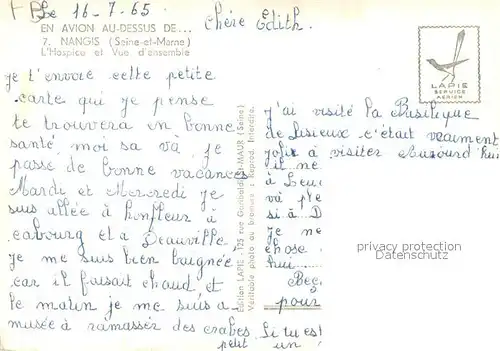 Le 16-7.65
Chère Edith.
EN AVION AU-DESSUS DE...
7. NANGIS (Seine-et-Marne)
L'Hospice et Vue d'ensemble
LAPIE
SERVICE
AERIEN
je t'envoie cette petite
carte qui je pense
te trouvera en bonne
santé, moi sa và je
passe de bonne vacances
Mardi et Mercredi je
suis allée à honfleur à
cabourg et a Deauville,
je me suis bien baignée,
car il faisait chaud et
le matin je me suis a-
musée à ramasser des crabes. Si tu es
petit un
Edition LAPIE - 125 rue Garibaldi St-MAUR (Seine)
Véritable photo au bromure : Reprod. Interdite.
j'ai visité la Basilique
de Lisieux c'était vraiment
joli à visiter Aujourd'hui
il ne
à
và
si à D
je ne
chose
hui
pour
privacy protection
Datenschutz